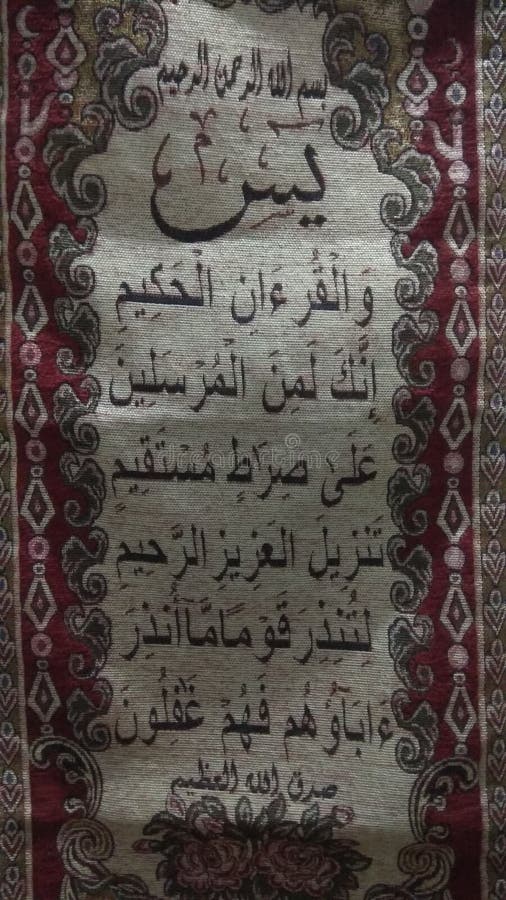 بسم الله الرحمن الرحيم
يٓسٓ
وَالْقُرْءَانِ الْحَكِيمِ
إِنَّكَ لَمِنَ الْمُرْسَلِينَ
عَلَىٰ صِرَاطٍ مُسْتَقِيمٍ
تَنْزِيلَ الْعَزِيزِ الرَّحِيمِ
لِتُنْذِرَ قَوْمًا مَّآ أُنْذِرَ
ءَابَآؤُهُمْ فَهُمْ غَٰفِلُونَ
صدق الله العظيم